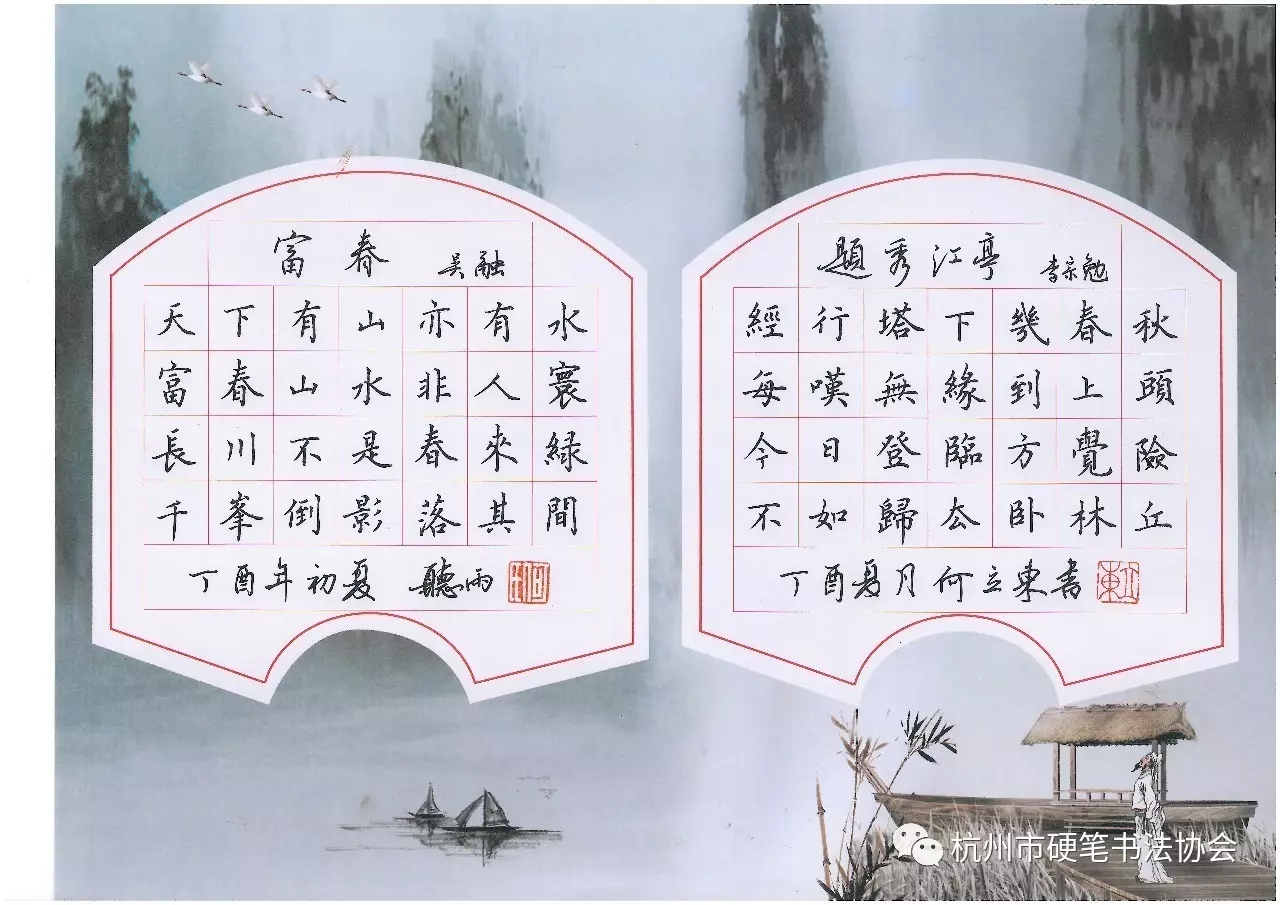 富春 吴融
天下有山亦有水
富春山水非人寰
長川不是春來綠
千峯倒影落其間
丁酉年初夏 聽雨
題秀江亭 李宗勉
經行塔下幾春秋
每嘆無緣到上頭
今日登臨方覺險
不如歸去卧林丘
丁酉夏月何立東書
立東
杭州市硬笔书法协会